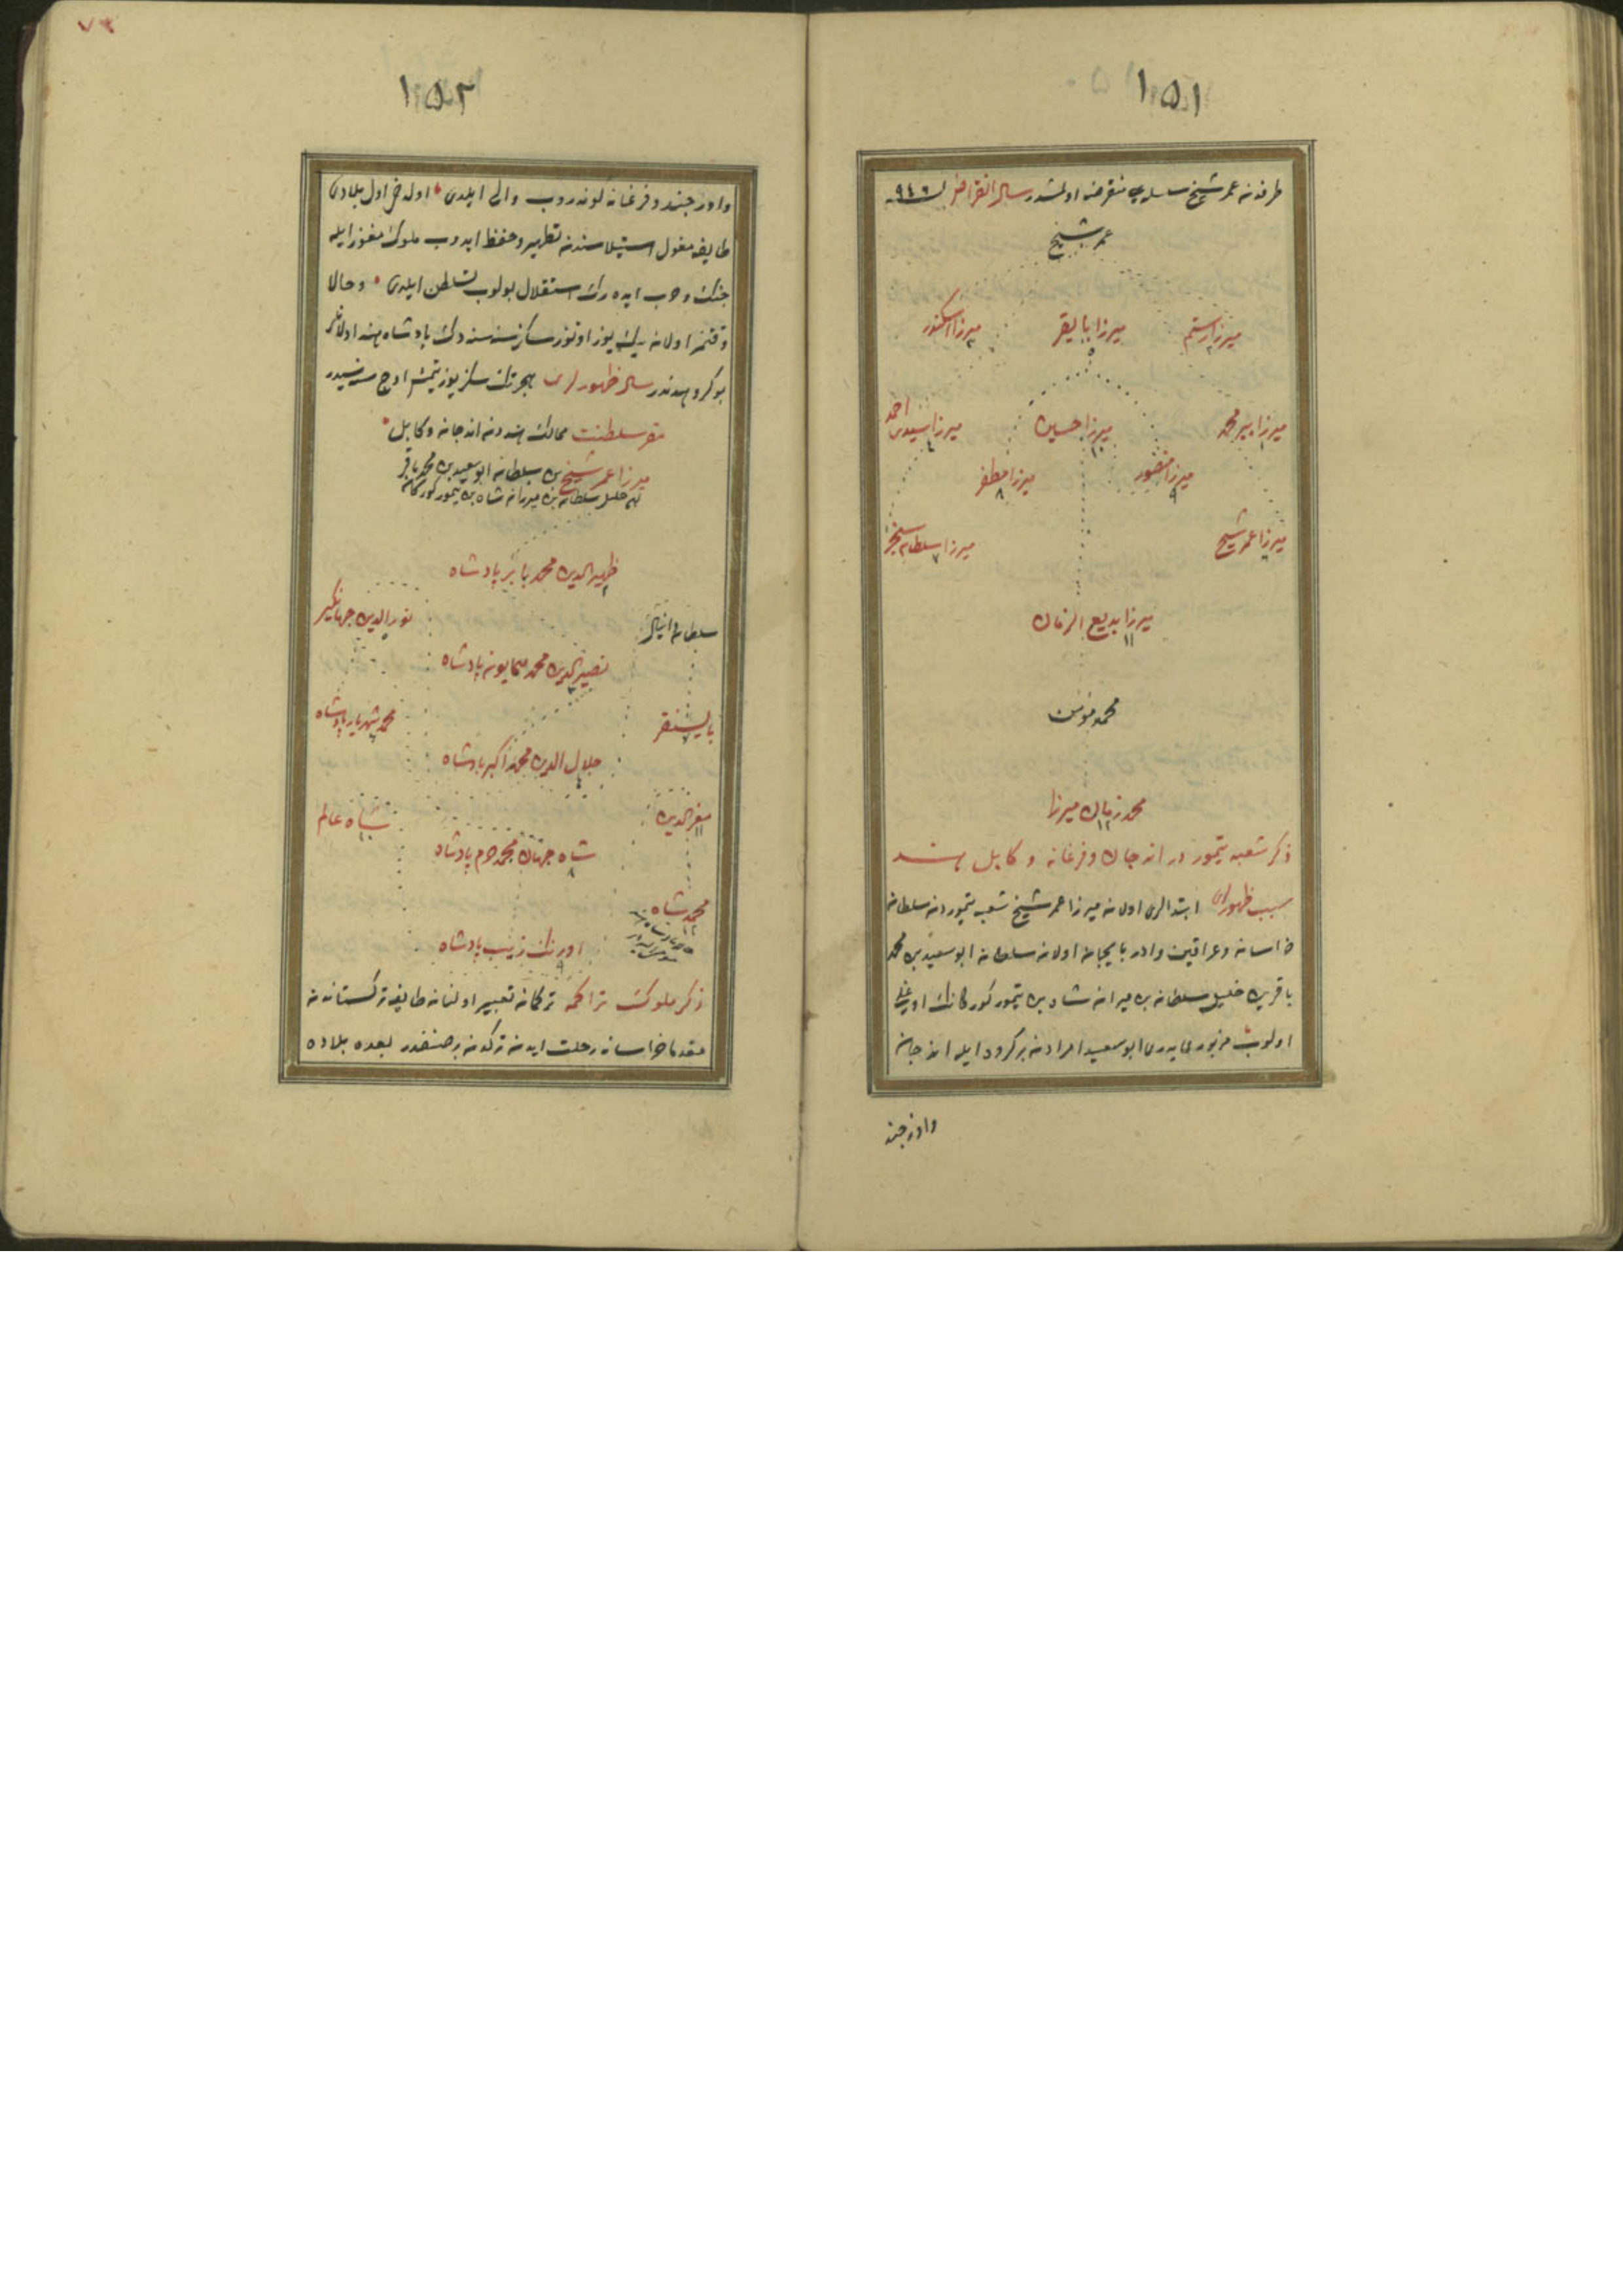 ١٥١
طرفندن عمر شيخ سلسله‌سى منقرض اولمشدر سال انقراض ٩٤٦
عمر شيخ
ميرزا رستم ميرزا بايقرا ٥ ميرزا اسكندر
ميرزا پير محمد ميرزا حسين ميرزا سيدى احمد
ميرزا منصور ٩ ميرزا مظفر ٨
ميرزا عمر شيخ ميرزا سلطان سنجر ٧
ميرزا بديع الزمان ١١
محمد مؤمن
محمد زمان ميرزا ١٢
ذكر شعبه تيمور در اندجان وفرغانه و كابل هند
سبب ظهورلرى ابتدالرى اولان ميرزا عمر شيخ شعب تيموردن سلطان
خراسان وعراقين وادربايجان اولان سلطان ابو سعيد بن محمد
باقر بن خليل سلطان بن ميران شاه بن تيمور كوركانك اوغلى
اولوب مزبورى پدرى ابو سعيد امرادن بر كروه ايله اندجان
واوزجند
٧٣
١٥٢
واوزجند وفرغانه كوندروب والى ايلدى اول دخى اول بلادى
طايفه مغول استيلاسندن تطهير وحفظ ايدوب ملوك مغول ايله
جنك وحرب ايدهرك استقلال بولوب تسلطن ايلدى وحالا
وقتمز اولان بيك يوز اوتوز سكز سنه‌سنده دك پادشاه هند اولانلر
بو كروهدندر سال ظهورلرى هجرتك سكز يوز يتمش اوچ سنه‌سيدر
مقر سلطنت ممالك هنددن اندجان وكابل
ميرزا عمر شيخ بن سلطان ابو سعيد بن محمد باقر
بن خليل سلطان بن ميران شاه بن تيمور كوركان
ظهير الدين محمد بابر پادشاه
سلطان دانيال نور الدين جهانكير
نصير الدين محمد همايون پادشاه
بايسنقر محمد شهريار پادشاه
جلال الدين محمد اكبر پادشاه
معز الدين ١١ شاه عالم ١٠
شاه جهان محمد خرم پادشاه ٨
محمد شاه ١٢
اورنك زيب پادشاه ٩
ذكر ملوك تراكمه تركمان تعبير اولنان طايفه تركستاندن
مقدما خراسانه رحلت ايدن تركدن بر صنفدر بعده بلاده